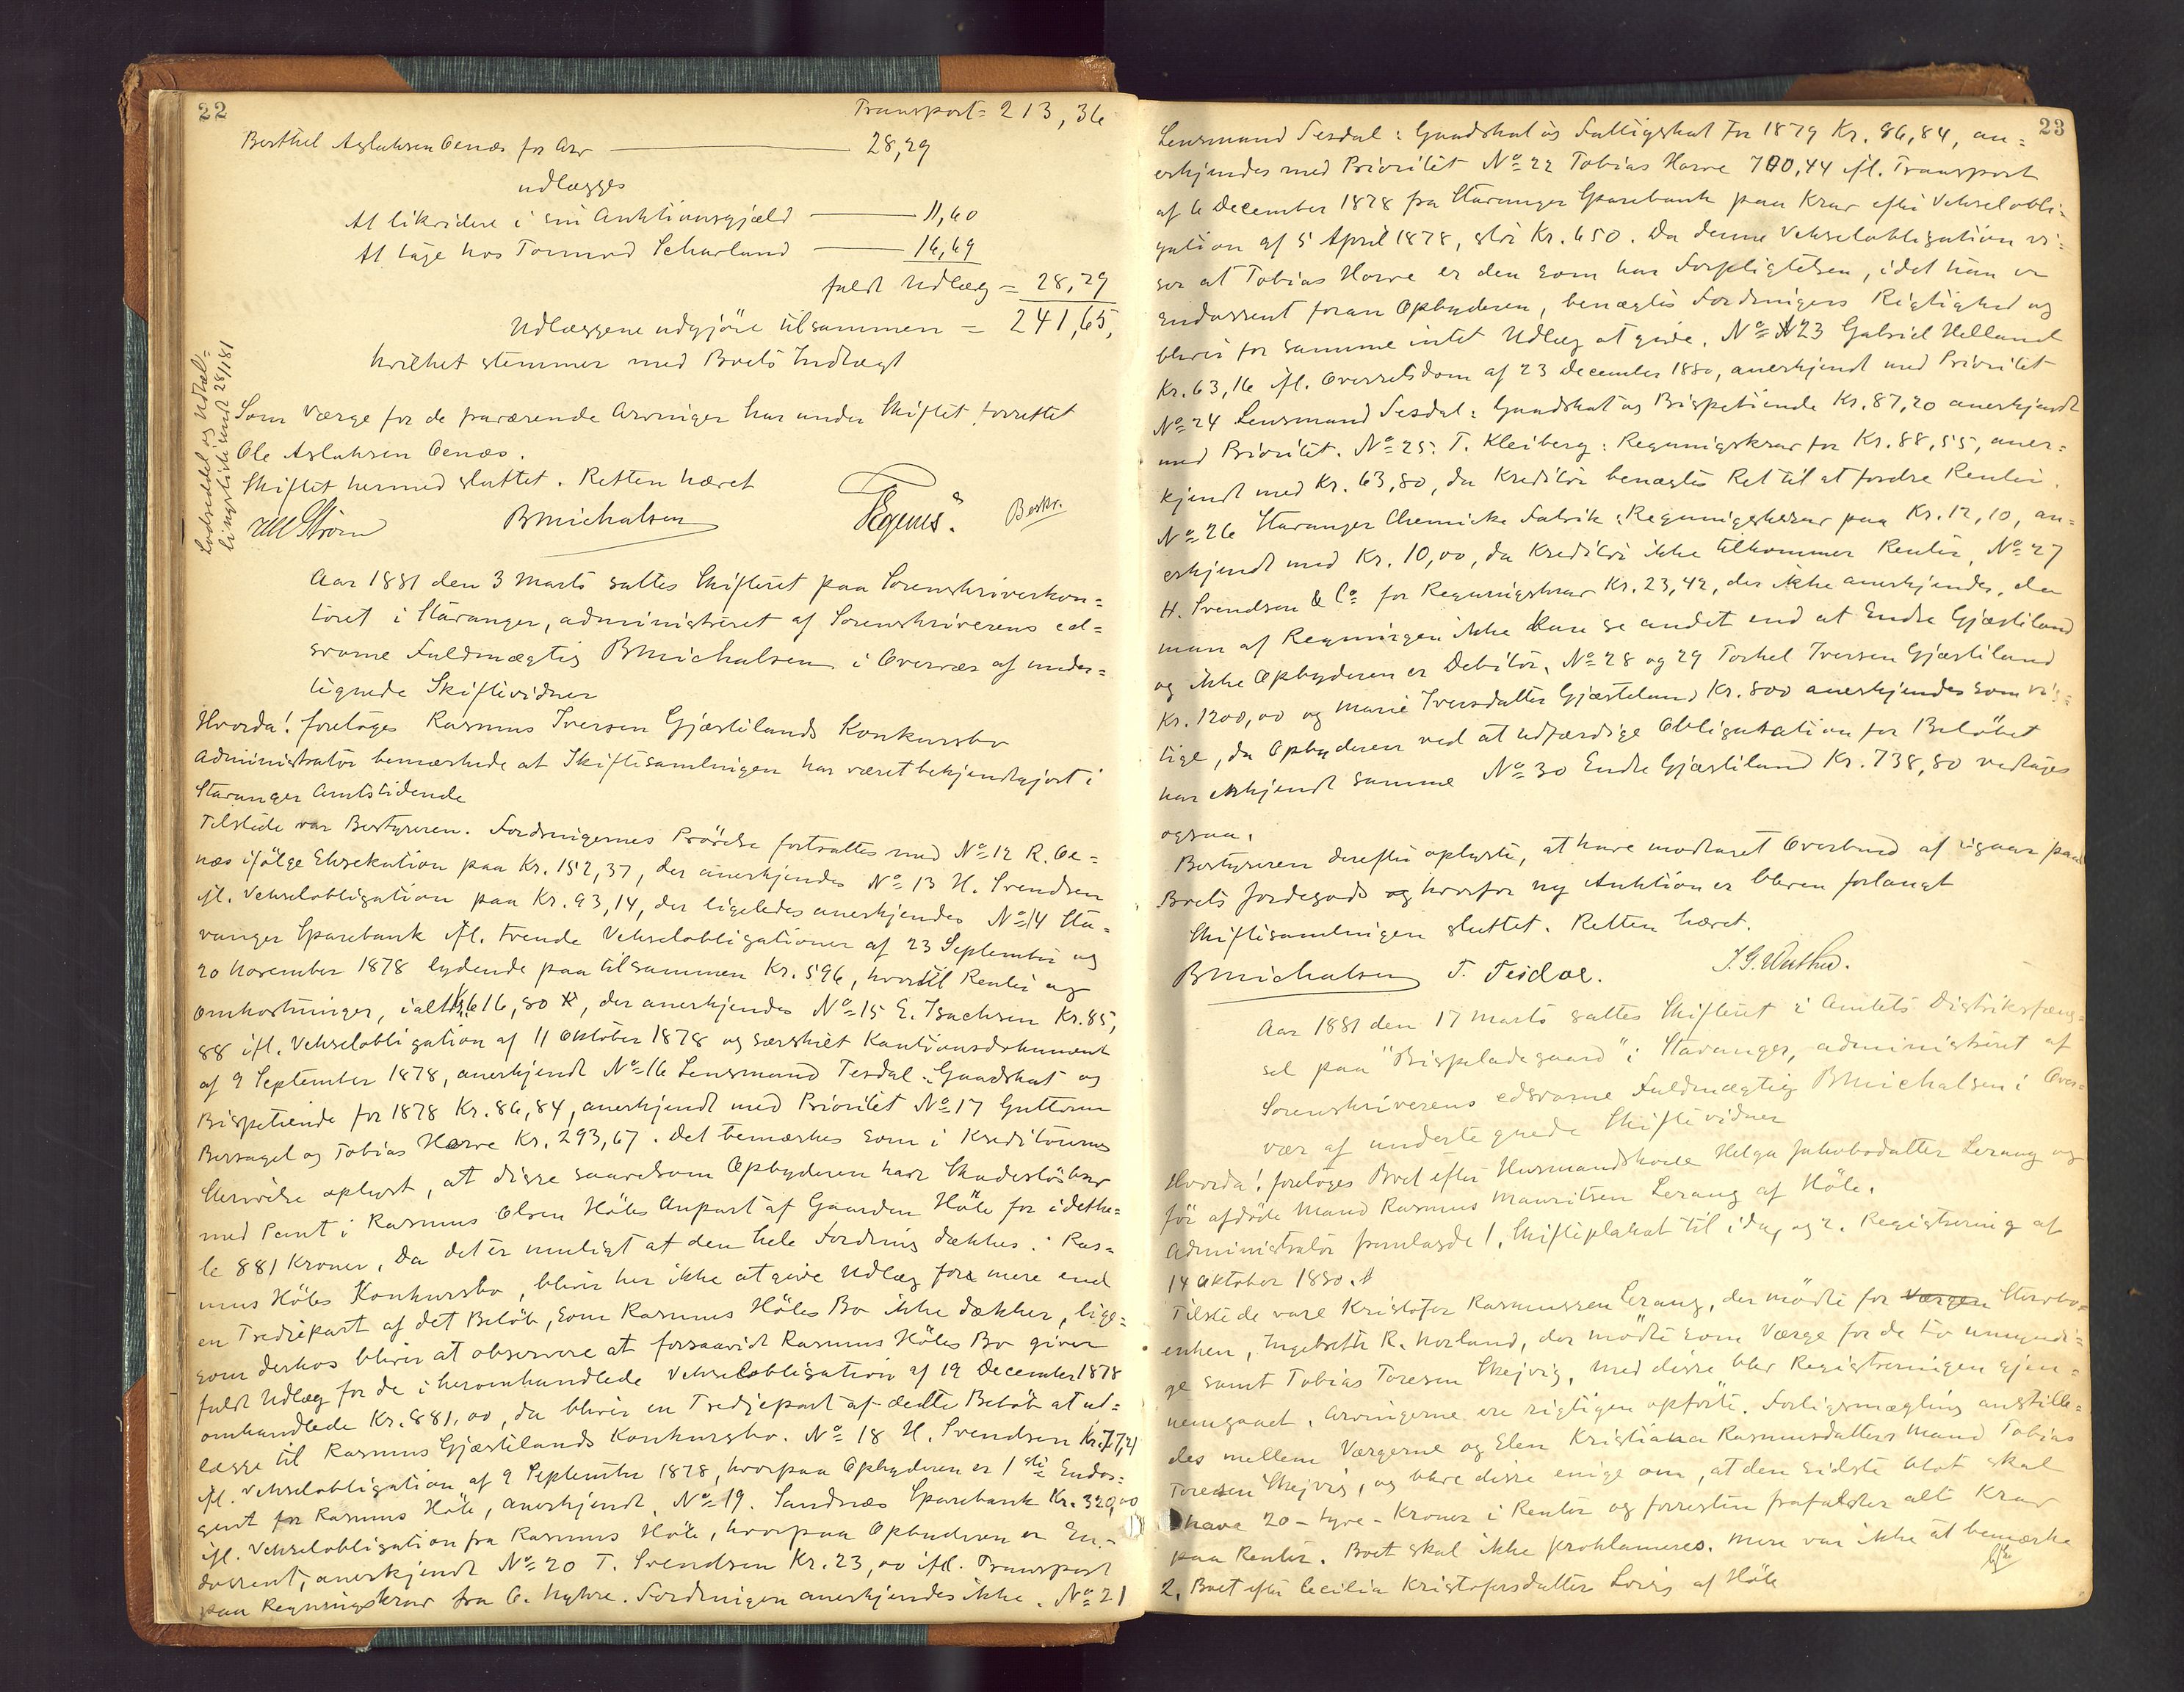 22
Transport = 213,36
Berthel Aslaksen Oenæs for Arv 28,29
udlægges
At likvidere i sin Auktionsgjæld 11,60
At tage hos Tormod Scharlund 16,69
fuldt Udlæg = 28,29
Udlæggene udgjöre tilsammen = 241,65,
hvilket stemmer med Boets Indtægt
Lodseddel og Udtæl-
lingsliste sendt 28/1 81
Som Værge for de fraværende Arvinger har under Skiftet forrettet
Ole Aslaksen Oenæs.
Skiftet hermed sluttet. Retten hævet
Ström BMichalsen Beskr.
Aar 1881 den 3 Marts sattes Skifteret paa Sorenskriverkon-
toret i Stavanger, administreret af Sorenskriverens ed-
svorne Fuldmægtig BMichalsen i Overvær af under-
tegnede Skiftevidner
Hvorda! foretoges Rasmus Iversen Gjæstelands Konkursbo
Administrator bemærkede at Skiftesamlingen har været bekjendtgjort i
Stavanger Amtstidende
Tilstede var Bestyreren. Fordringernes Prövelse fortsattes med No 12 R. Oe-
næs ifölge Eksekution paa Kr. 152,37, der anerkjendes No 13 H. Svendsen
ifl. Vekselobligation paa Kr. 93,14, der ligeledes anerkjendes No 14 Sta-
vanger Sparebank ifl. trende Vekselobligationer af 23 September og
20 November 1878 lydende paa tilsammen Kr. 596, hvortil Renter og
Omkostninger, ialt Kr. 616,80, der anerkjendes No 15 E. Isachsen Kr. 85,
88 ifl. Vekselobligation af 11 Oktober 1878 og særskilt Kautionsdokument
af 9 September 1878, anerkjendt No 16 Lensmand Tesdal: Gaardskat og
Bispetiende for 1878 Kr. 86,84, anerkjendt med Prioritet No 17 Guttorm
Bersagel og Tobias Harve Kr. 293,67. Det bemærkes som i Kreditorernes
Skrivelse oplyst, at disse saavelsom Opbyderen har Skadeslösbrev
med Pant i Rasmus Olsen Höles Anpart af Gaarden Höle for idethe-
le 881 Kroner. Da det er muligt at den hele Fordring dækkes i Ras-
mus Höles Konkursbo, bliver her ikke at give Udlæg for mere end
en Tredjepart af det Belöb, som Rasmus Höles Bo ikke dækker, lige-
som derhos bliver at observere at forsaavidt Rasmus Höles Bo giver
fuldt Udlæg for de i heromhandlede Vekselobligation af 19 December 1878
omhandlede Kr. 881,00, da bliver en Tredjepart af dette Belöb at ud-
lægge til Rasmus Gjæstelands Konkursbo. No 18 H. Svendsen Kr. 77,21
ifl. Vekselobligation af 9 September 1878, hvorpaa Opbyderen er 1ste Endos-
sent for Rasmus Höle, anerkjendt. No 19. Sandnæs Sparebank Kr. 320,00
ifl. Vekselobligation fra Rasmus Höle, hvorpaa Opbyderen er En-
dossent, anerkjendt No 20 T. Svendsen Kr. 23,00 ifl. Transport
paa Regningskrav fra O. Nykre. Fordringen anerkjendes ikke. No 21
23
Lensmand Tesdal: Gaardskat og Fattigskat for 1879 Kr. 86,84, an-
erkjendes med Prioritet No 22 Tobias Harve 700,44 ifl. Transport
af 6 December 1878 fra Stavanger Sparebank paa Krav efter Vekselobli-
gation af 5 April 1878, stor Kr. 650. Da denne Vekselobligation vi-
ser at Tobias Harve er den som har Forpligtelsen, idet han er
Endossent foran Opbyderen, benægtes Fordringens Rigtighed og
bliver for samme intet Udlæg at give. No 23 Gabriel Helland
Kr. 63,16 ifl. Overretsdom af 23 December 1880, anerkjendt med Prioritet
No 24 Lensmand Tesdal: Gaardskat og Bispetiende Kr. 87,20 anerkjendt
med Prioritet. No 25. T. Kleiberg: Regningskrav for Kr. 88,55, aner-
kjendt med Kr. 63,80, da Kreditor benægtes Ret til at fordre Renter.
No 26 Stavanger Chemicke Fabrik: Regningskrav paa Kr. 12,10, an-
erkjendt med Kr. 10,00, da Kreditor ikke tilkommer Renter, No 27
H. Svendsen & Co for Regningskrav Kr. 23,42, der ikke anerkjendes, da
man af Regningen ikke kan se andet end at Endre Gjæsteland
og ikke Opbyderen er Debitor, No 28 og 29 Torkel Iversen Gjæsteland
Kr. 1200,00 og Marie Iversdatter Gjæsteland Kr. 800 anerkjendes som rig-
tige, da Opbyderen ved at udfærdige Obligation for Belöbet
har erkjendt samme No 30 Endre Gjæsteland Kr. 738,80 vedtages
ogsaa.
Bestyreren derefter oplyste, at have modtaget Overbud af igaar paa
Boets Jordegods og hvorfor ny Auktion er bleven forlangt
Skiftesamlingen sluttet. Retten hævet.
BMichalsen T. Tesdal.
Aar 1881 den 17 Marts sattes Skifteret i Amtets Distriktsfæng-
sel paa "Bispeladegaard" i Stavanger, administreret af
Sorenskriverens edsvorne Fuldmægtig BMichalsen i Over-
vær af undertegnede Skiftevidner
Hvorda! foretoges Boet efter Husmandskone Helga Jakobsdatter Lerang og
för afdöde Mand Rasmus Mauritsen Lerang af Höle.
Administrator fremlagde 1. Skifteplakat til idag og 2. Registrering af
14 Oktober 1880.
Tilstede vare Kristofer Rasmussen Lerang, der mödte for Værgen Stervbo-
enken, Ingebreth R. Norland, der mödte som Værge for de to umyndi-
ge samt Tobias Toresen Skejvig, Med disse blev Registreringen gjen-
nemgaaet. Arvingerne ere rigtigen opförte. Forligsmægling anstille-
des mellem Værgerne og Elen Kristiana Rasmusdatters Mand Tobias
Toresen Skejvig, og bleve disse enige om, at den sidste blot skal
have 20 - tyve - Kroner i Renter og forresten frafalder alt Krav
paa Renter. Boet skal ikke proklameres. Mere var ikke at bemærke
2. Boet efter Cecilia Kristofersdatter Lovig af Höle